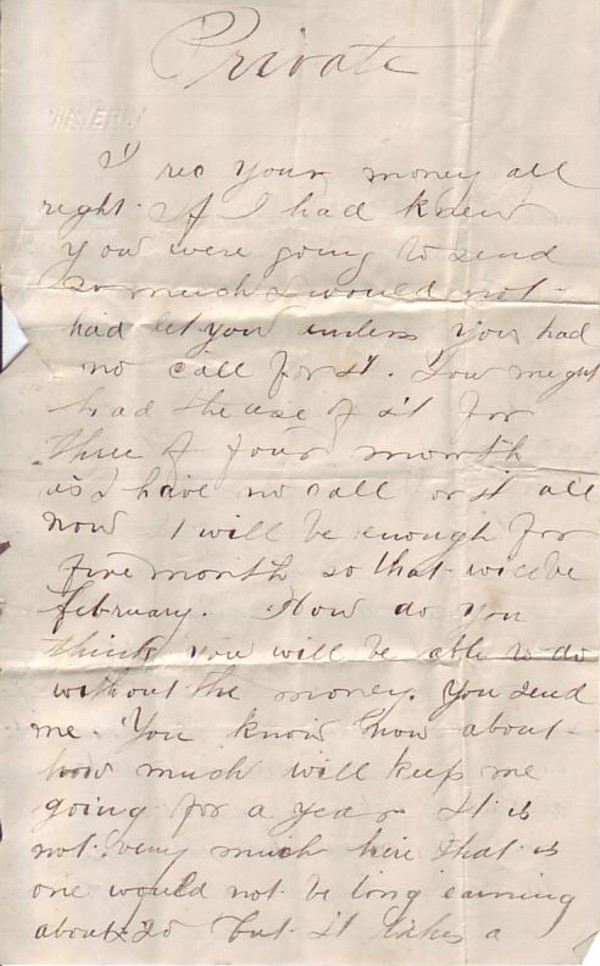 Private
WAVERLY
I rec your money all
right. If I had knew
you were going to send
so much I would not
had let you unless you had
no call for it. You might
had the use of it for
three of four month
as I have no call or it all
now I will be enough for
five month so that will be
february. How do you
think you will be able to do
without the money. You send
me. You know how about
how much will keep me
going for a year It is
not very much here that is
one would not be long earning
about 20 but it takes a